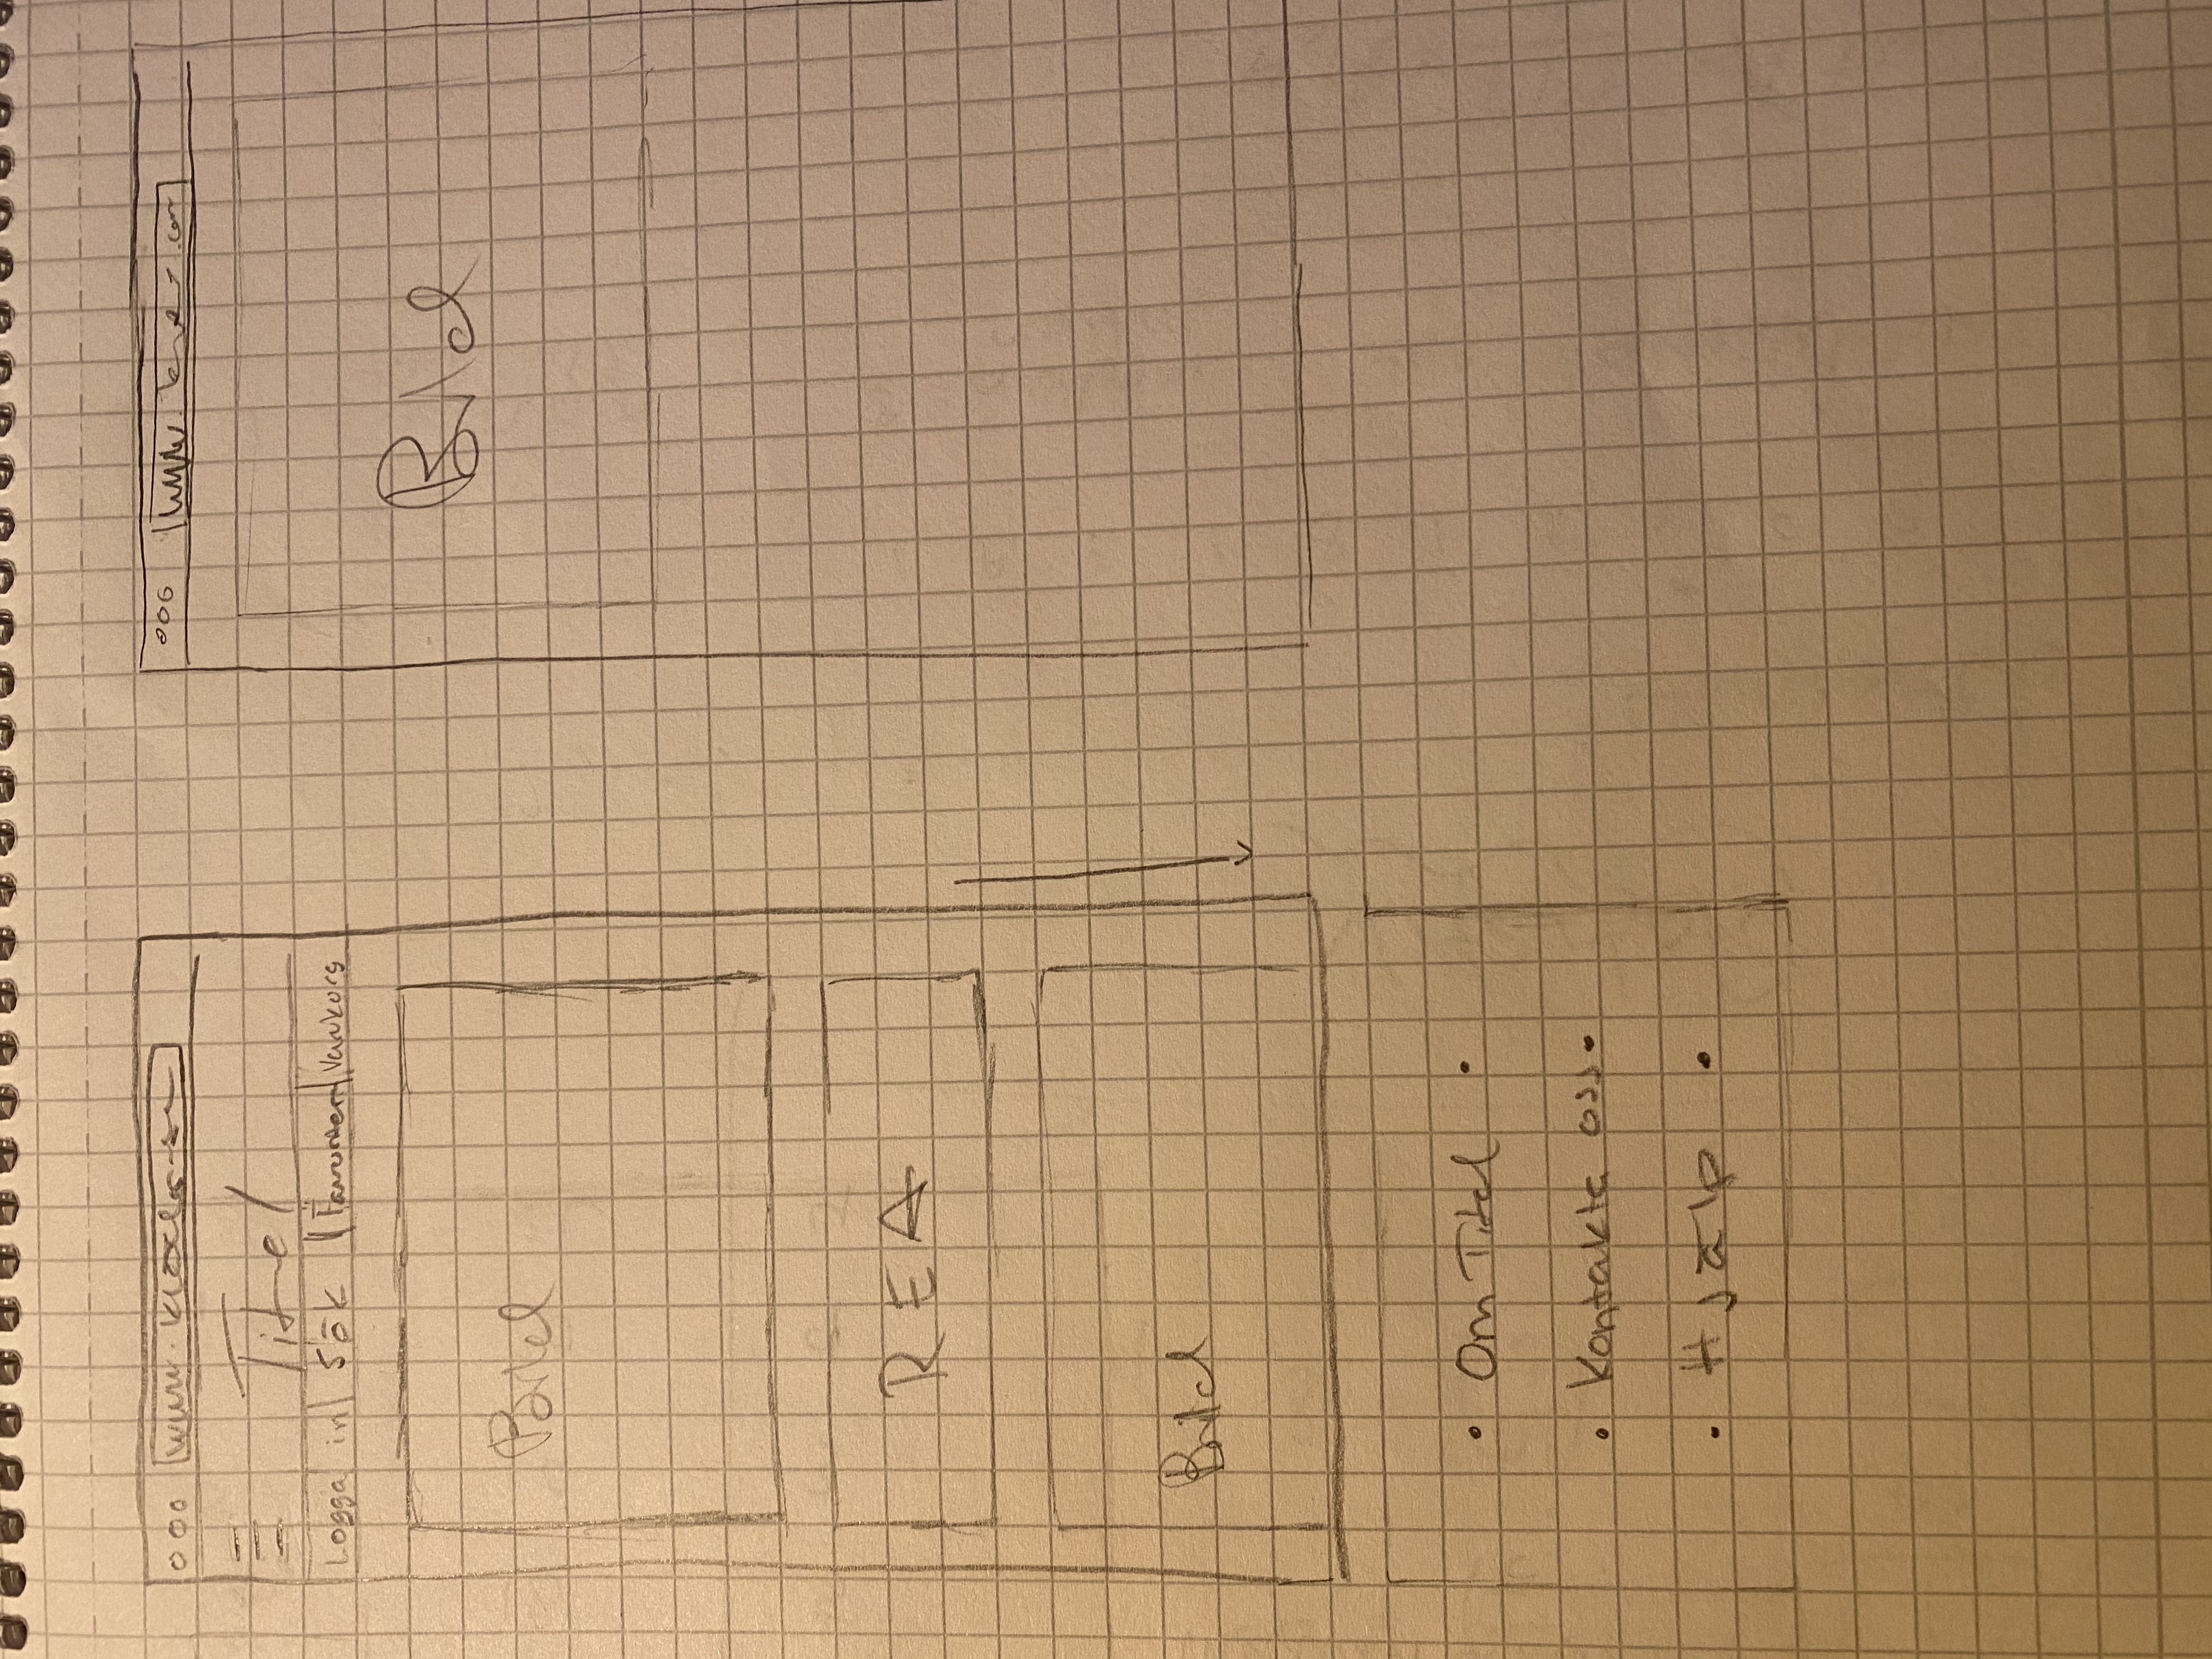 www.
Titel
Logga in Sök Favoriter Varukorg
Bild
REA
Bild
• Om Titel •
• Kontakta oss •
• Hjälp •
www. .com
Bild